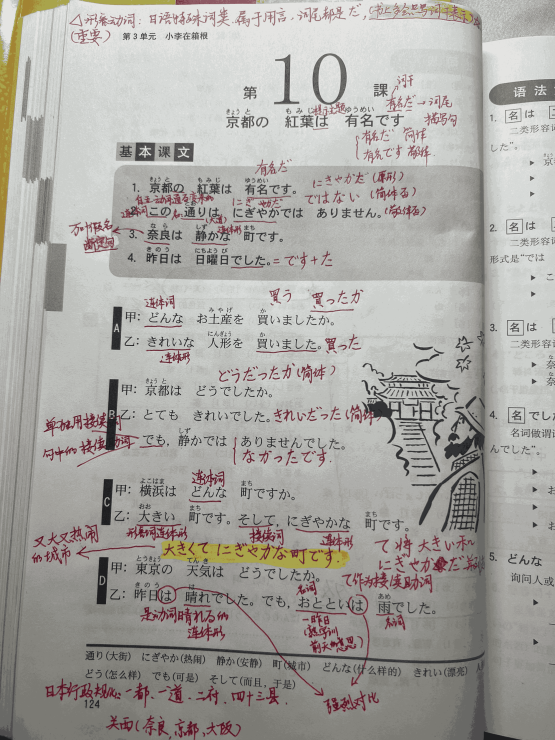 第3单元　小李在箱根
(重要)
第 10 課
京都の 紅葉は 有名です
有名だ → 词尾
有名だ 简体
有名です 敬体
基本课文
有名だ
1. 京都の 紅葉は 有名です。
にぎやかだ (原形)
ではない (简体否)
2. この 通りは にぎやかでは ありません。(敬体否)
3. 奈良は 静かな 町です。
连体形
4. 昨日は 日曜日でした。= です + た
连体词
買う 買ったか
A
甲: どんな お土産を 買いましたか。
乙: きれいな 人形を 買いました。買った
连体形
どうだったか (简体)
B
甲: 京都は どうでしたか。
乙: とても きれいでした。きれいだった (简体)
でも, 静かでは ありませんでした。
なかったです.
连体词
C
甲: 横浜は どんな 町ですか。
乙: 大きい 町です。そして, にぎやかな 町です。
形容词连体形 接续词 连体形
又大又热闹的城市
大きくて にぎやかな町です.
て作为接续助词
D
甲: 東京の 天気は どうでしたか。
乙: 昨日は 晴れでした。でも, おとといは 雨でした。
是动词晴れる的
连体形
名词
名词
强烈对比
通り(大街) にぎやか(热闹) 静か(安静) 町(城市) どんな(什么样的) きれい(漂亮)
どう(怎么样) でも(可是) そして(而且,于是)
日本行政规划: 一都、一道、二府、四十三县
124
关西(奈良,京都,大阪)
语法
1. 名 は
二类形容词
した”。
2. 名 は
二类形容词
形式是“では
3. 名 は
二类形容词
4. 名 でし
名词做谓语
んでした”。
5. どんな
询问人或